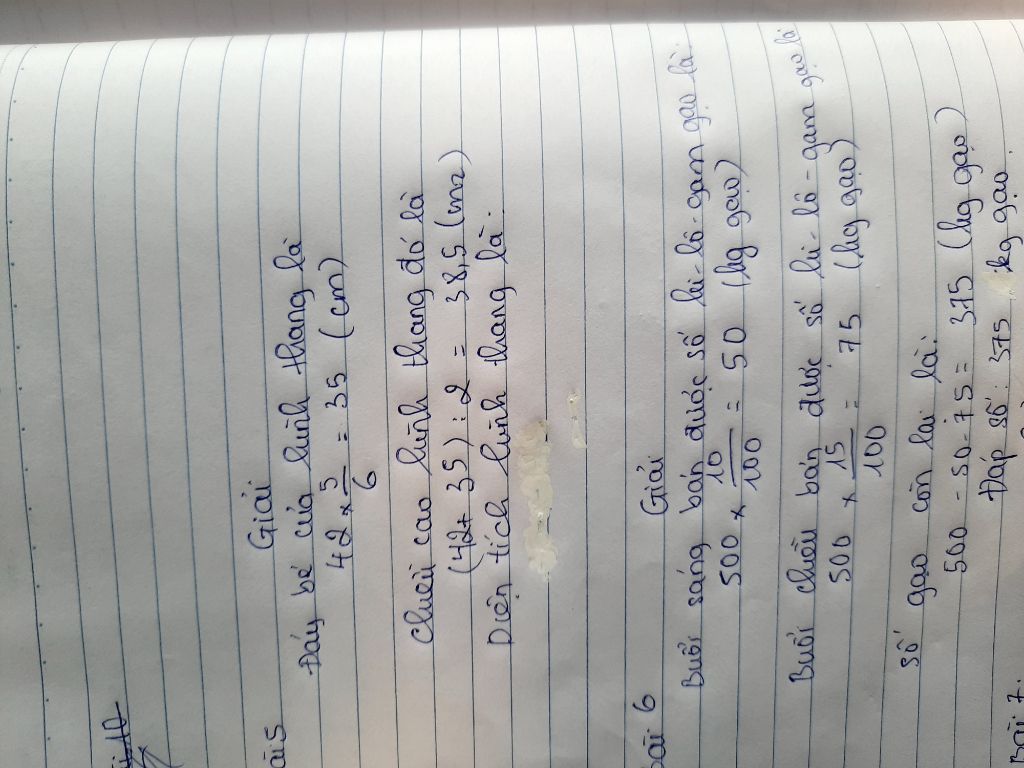 ài 5
Giải
Đáy bé của hình thang là
42 × 5/6 = 35 (cm)
chiều cao hình thang đó là
(42 + 35) : 2 = 38,5 (cm)
Diện tích hình thang là.
Bài 6
Giải
Buổi sáng bán được số ki-lô-gam gạo là:
500 × 10/100 = 50 (kg gạo)
Buổi chiều bán được số ki-lô-gam gạo là
500 × 15/100 = 75 (kg gạo)
số gạo còn lại là:
500 - 50 - 75 = 375 (kg gạo)
Đáp số: 375 kg gạo.
Bài 7.